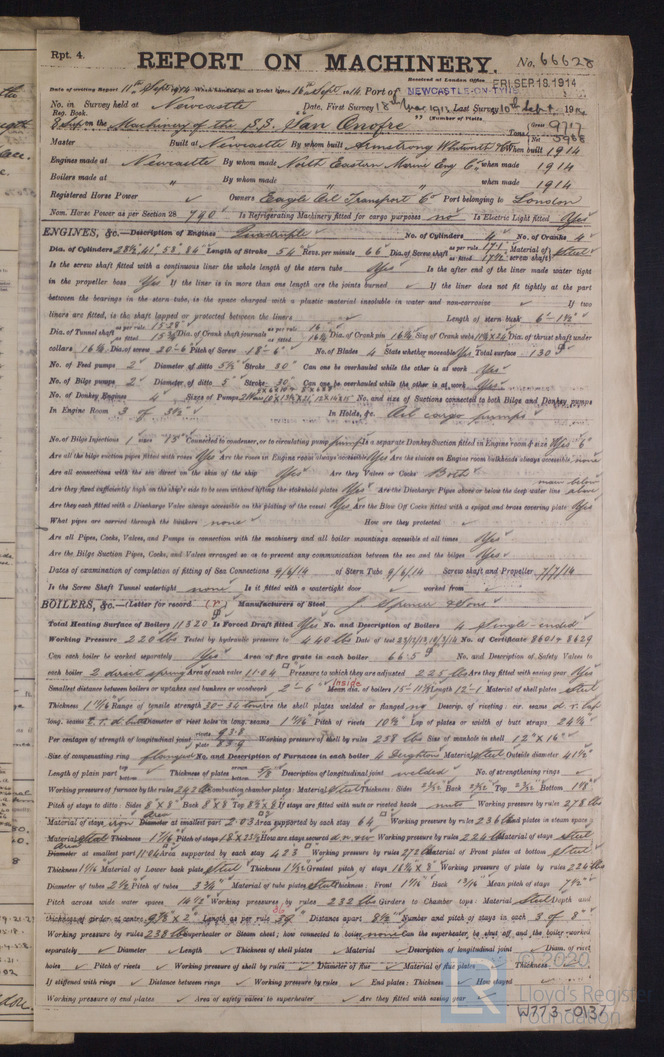 Rpt. 4.
REPORT ON MACHINERY.
No. 66628
Received at London Office
FRI. SEP. 18. 1914
Date of writing Report 11th Sept 1914 When handed in at Local Office 16th Sept 1914 Port of NEWCASTLE-ON-TYNE
No. in Survey held at Newcastle Date, First Survey 18th Mar 1913 Last Survey 10th Sept 1914
Reg. Book. (Number of Visits
on the Machinery of the S.S. San Onofre Tons Gross 9717 Net 5988
Master Built at Newcastle By whom built Armstrong Whitworth & Co When built 1914
Engines made at Newcastle By whom made North Eastern Marine Eng Co. when made 1914
Boilers made at " By whom made " when made 1914
Registered Horse Power Owners Eagle Oil Transport Co Port belonging to London
Nom. Horse Power as per Section 28 790 Is Refrigerating Machinery fitted for cargo purposes no Is Electric Light fitted Yes
ENGINES, &c.—Description of Engines Quadruple No. of Cylinders 4 No. of Cranks 4
Dia. of Cylinders 28½" 41" 58" 84" Length of Stroke 54" Revs. per minute 66 Dia. of Screw shaft as per rule 17.1 as fitted 17½ Material of screw shaft steel
Is the screw shaft fitted with a continuous liner the whole length of the stern tube Yes Is the after end of the liner made water tight
in the propeller boss Yes If the liner is in more than one length are the joints burned If the liner does not fit tightly at the part
between the bearings in the stern tube, is the space charged with a plastic material insoluble in water and non-corrosive If two
liners are fitted, is the shaft lapped or protected between the liners Length of stern bush 6'-1½"
Dia. of Tunnel shaft as per rule 15.28 as fitted 15¾ Dia. of Crank shaft journals as per rule 16 as fitted 16¼ Dia. of Crank pin 16¼ Size of Crank webs Dia. of thrust shaft under
collars 16¼ Dia. of screw 20-6 Pitch of Screw 18-6 No. of Blades 4 State whether moveable Yes Total surface 130
No. of Feed pumps 2 Diameter of ditto 5½ Stroke 30" Can one be overhauled while the other is at work Yes
No. of Bilge pumps 2 Diameter of ditto 5" Stroke 30" Can one be overhauled while the other is at work Yes
No. of Donkey Engines 4 Sizes of Pumps No. and size of Suctions connected to both Bilge and Donkey pumps
In Engine Room 3 of 3½" In Holds, &c. Oil cargo pumps
No. of Bilge Injections 1 sizes 13" Connected to condenser, or to circulating pump pump Is a separate Donkey Suction fitted in Engine room & size Yes 6"
Are all the bilge suction pipes fitted with roses Yes Are the roses in Engine room always accessible Yes Are the sluices on Engine room bulkheads always accessible none
Are all connections with the sea direct on the skin of the ship Yes Are they Valves or Cocks Both
Are they fixed sufficiently high on the ship's side to be seen without lifting the stokehold plates Yes Are the Discharge Pipes above or below the deep water line main below above
Are they each fitted with a Discharge Valve always accessible on the plating of the vessel Yes Are the Blow Off Cocks fitted with a spigot and brass covering plate Yes
What pipes are carried through the bunkers none How are they protected
Are all Pipes, Cocks, Valves, and Pumps in connection with the machinery and all boiler mountings accessible at all times Yes
Are the Bilge Suction Pipes, Cocks, and Valves arranged so as to prevent any communication between the sea and the bilges Yes
Dates of examination of completion of fitting of Sea Connections 9/6/14 of Stern Tube 9/6/14 Screw shaft and Propeller 7/7/14
Is the Screw Shaft Tunnel watertight none Is it fitted with a watertight door worked from
BOILERS, &c.—(Letter for record (r) Manufacturers of Steel J. Spencer & Sons
Total Heating Surface of Boilers 11320 Is Forced Draft fitted Yes No. and Description of Boilers 4 Single-ended
Working Pressure 220 lbs Tested by hydraulic pressure to 440 lbs Date of test No. of Certificate 8601 & 8629
Can each boiler be worked separately Yes Area of fire grate in each boiler 66.5 No. and Description of Safety Valves to
each boiler 2 direct spring Area of each valve 11.04 Pressure to which they are adjusted 225 lbs Are they fitted with easing gear Yes
Smallest distance between boilers or uptakes and bunkers or woodwork 2'-6" inside Mean dia. of boilers 15-11 Length 12-1 Material of shell plates steel
Thickness Range of tensile strength 30-34 tons Are the shell plates welded or flanged no Descrip. of riveting: cir. seams d.r. lap
long. seams Diameter of rivet holes in long. seams 1 7/16 Pitch of rivets 10 Lap of plates or width of butt straps 24¼
Per centages of strength of longitudinal joint rivets 93.8 plate 85.9 Working pressure of shell by rules 238 lbs Size of manhole in shell 12"x16"
Size of compensating ring flanged No. and Description of Furnaces in each boiler 4 Deighton Material steel Outside diameter 41½
Length of plain part top bottom Thickness of plates crown bottom 5/8 Description of longitudinal joint welded No. of strengthening rings
Working pressure of furnace by the rules 242 lbs Combustion chamber plates: Material steel Thickness: Sides 23/32 Back 23/32 Top 23/32 Bottom
Pitch of stays to ditto: Sides 8"x8" Back 8"x8" Top If stays are fitted with nuts or riveted heads nuts Working pressure by rules 278 lbs
Material of stays iron Area Diameter at smallest part 2.03 Area supported by each stay 64 Working pressure by rules 236 lbs End plates in steam space
Material steel Thickness Pitch of stays How are stays secured d.n.&w. Working pressure by rules 224 lbs Material of stays steel
Area Diameter at smallest part 11.04 Area supported by each stay 423 Working pressure by rules 272 lbs Material of Front plates at bottom steel
Thickness Material of Lower back plate steel Thickness Greatest pitch of stays Working pressure of plate by rules 226 lbs
Diameter of tubes 2½ Pitch of tubes 3¾" Material of tube plates steel Thickness: Front Back Mean pitch of stays 7½
Pitch across wide water spaces 14½ Working pressures by rules 232 lbs Girders to Chamber tops: Material steel Depth and
thickness of girder at centre Length as per rule Distance apart 8½ Number and pitch of stays in each 3 of 8"
Working pressure by rules 238 lbs Superheater or Steam chest; how connected to boiler none Can the superheater be shut off and the boiler worked
separately Diameter Length Thickness of shell plates Material Description of longitudinal joint Diam. of rivet
holes Pitch of rivets Working pressure of shell by rules Diameter of flue Material of flue plates Thickness
If stiffened with rings Distance between rings Working pressure by rules End plates: Thickness How stayed
Working pressure of end plates Area of safety valves to superheater Are they fitted with easing gear
© 2020
Lloyd's Register
Foundation
W773-0137